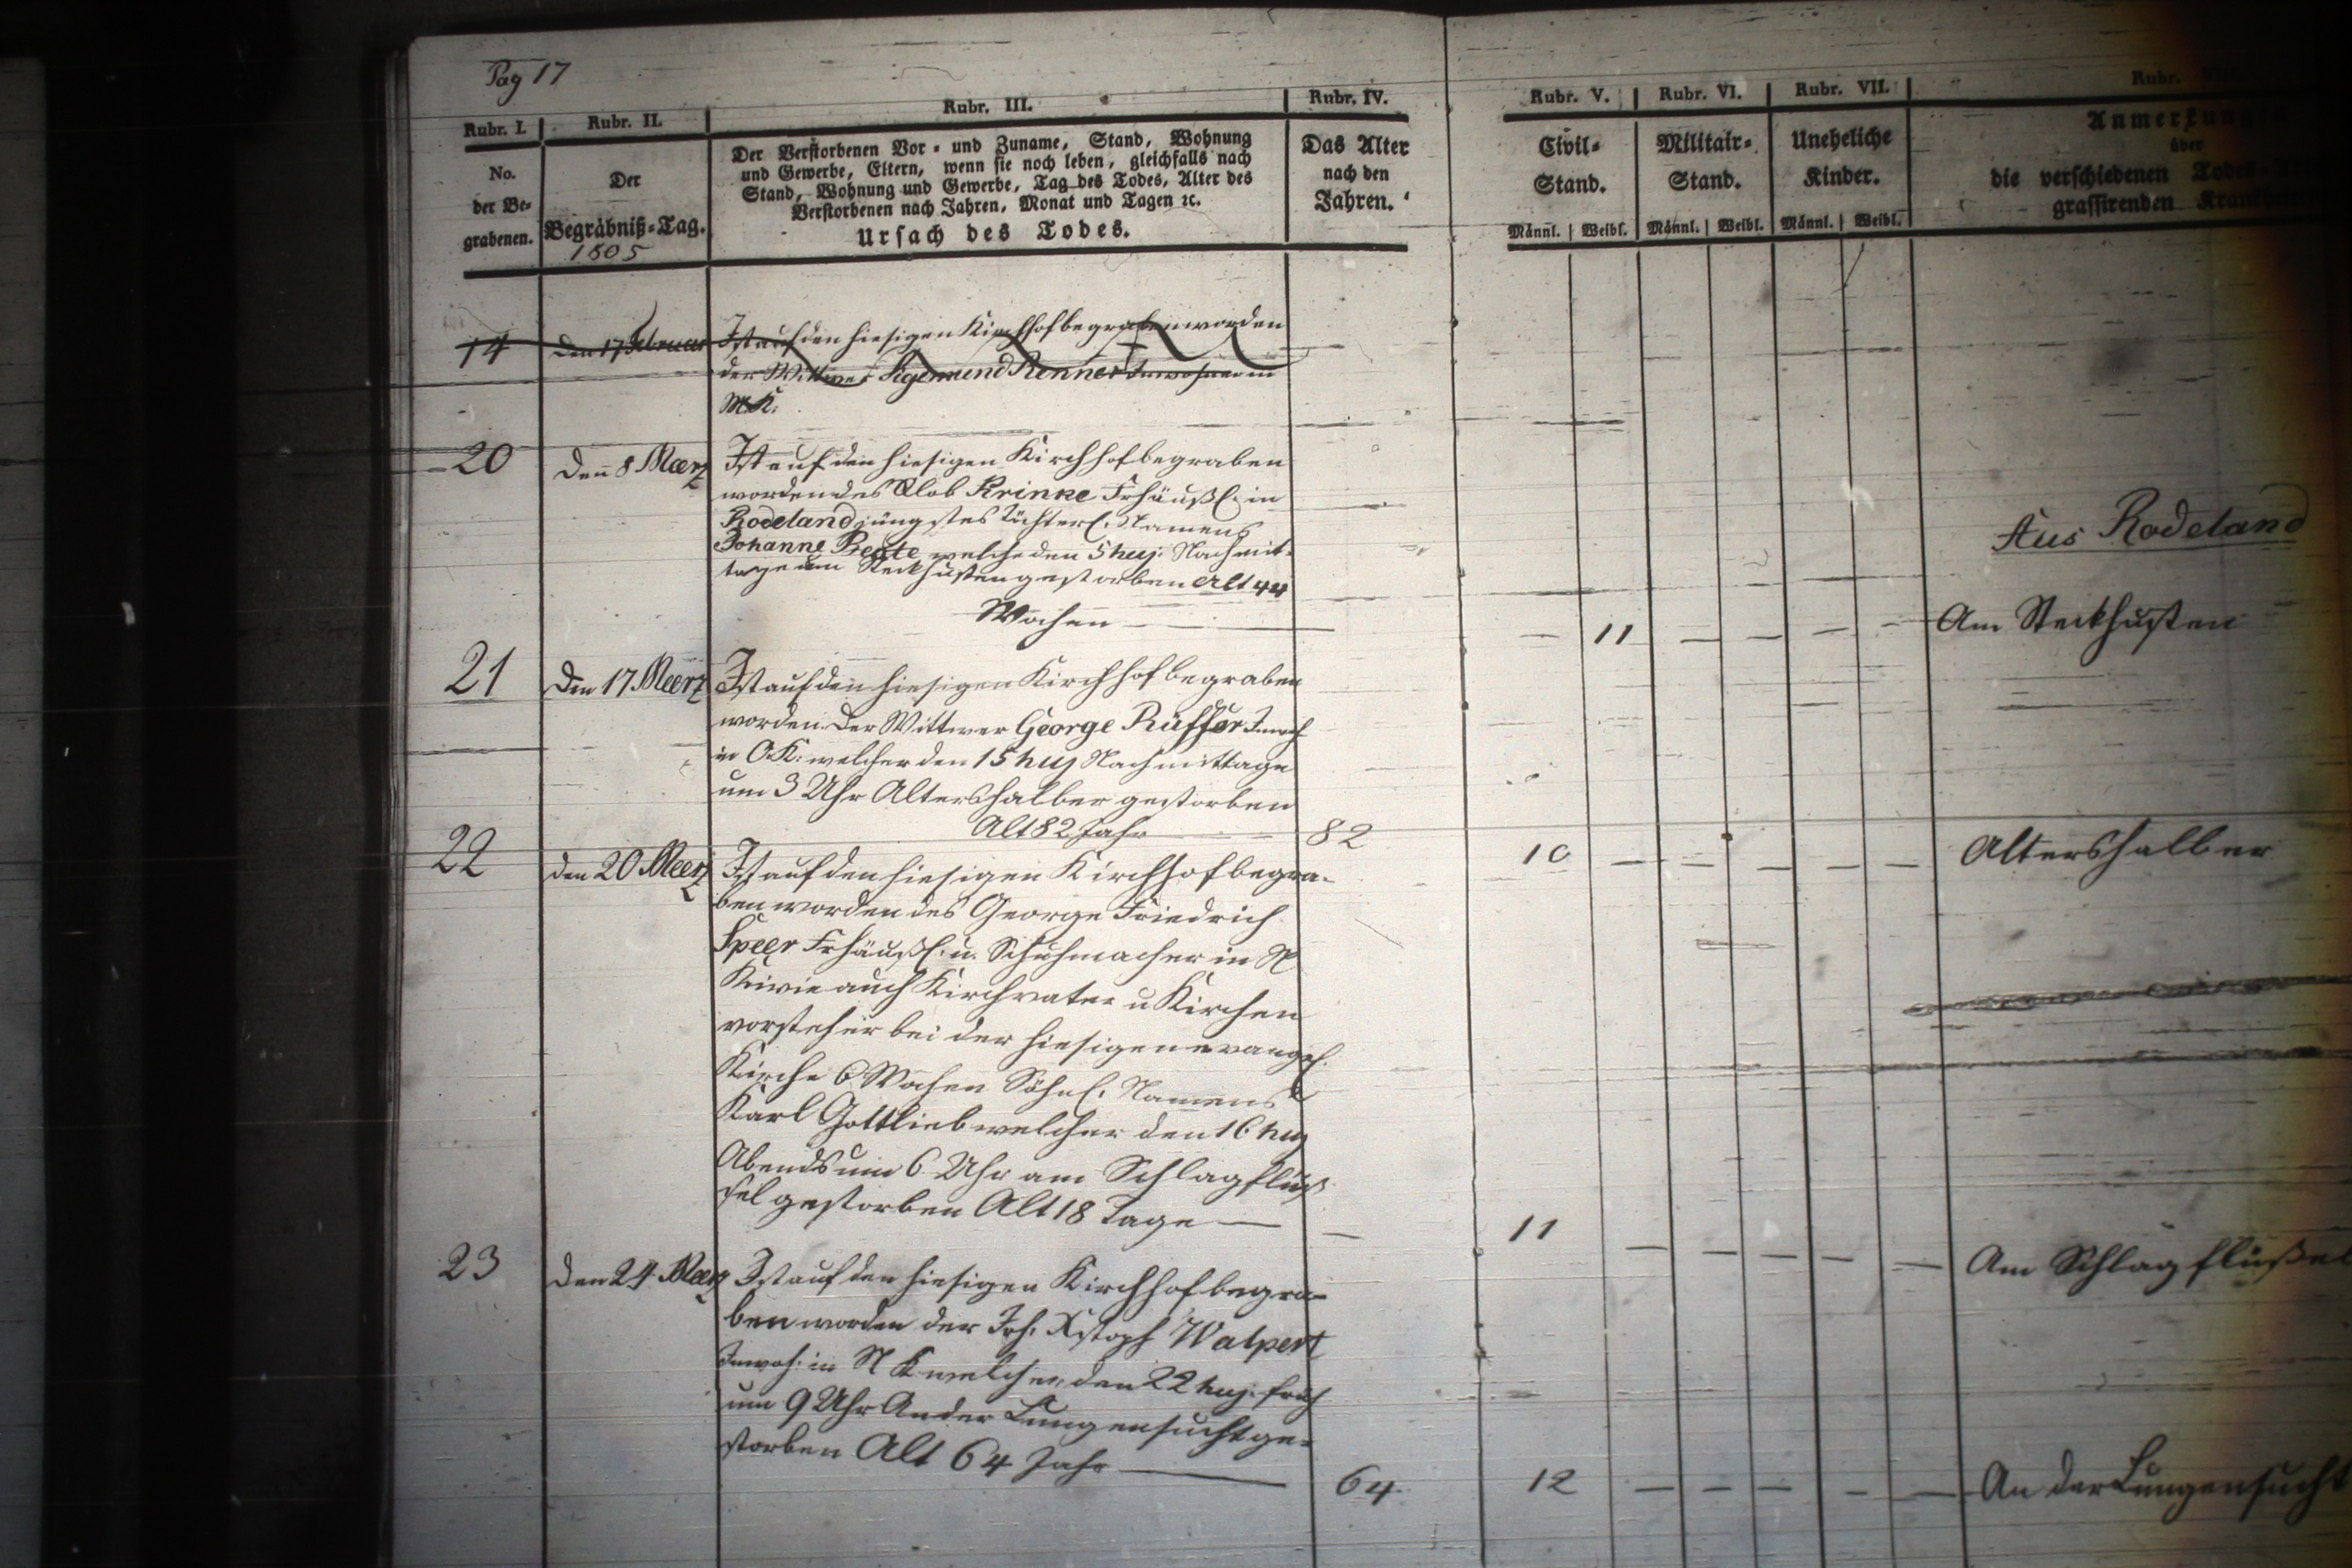 Pag 17
Rubr. I. Rubr. II. Rubr. III. Rubr. IV. Rubr. V. Rubr. VI. Rubr. VII. Rubr.
No. der Be- grabenen.
Der Begräbniß-Tag.
1805
Der Verstorbenen Vor- und Zuname, Stand, Wohnung
und Gewerbe, Eltern, wenn sie noch leben, gleichfalls nach
Stand, Wohnung und Gewerbe, Tag des Todes, Alter des
Verstorbenen nach Jahren, Monat und Tagen ꝛc.
Ursach des Todes.
Das Alter
nach den
Jahren.
Civil-
Stand.
Militair-
Stand.
Uneheliche
Kinder.
Anmerkungen
über
die verschiedenen Todes-
grassirenden
Männl. Weibl. Männl. Weibl. Männl. Weibl.
14 Den 17 Februar Ist auf den hiesigen Kirchhof begraben worden
der Sigemund Renner Inwohner in
20 Den 8 Maerz Ist auf den hiesigen Kirchhof begraben
worden des Krinke Frhäußl. in
Rodeland jüngstes Töchterl. Namens
Johanne Beate welche den 5 huj. Nachmit-
tage am Steckhusten gestorben Alt 44
Wochen
Aus Rodeland
11 Am Steckhusten
21 Den 17 Meerz Ist auf den hiesigen Kirchhof begraben
worden Der Wittwer George Rüffer Inwoh
in O.K. welcher den 15 huj Nachmittage
um 3 Uhr Altershalber gestorben
Alt 82 Jahr 82
10 Altershalber
22 den 20 Meerz Ist auf den hiesigen Kirchhof begra-
ben worden des George Friedrich
Speer Frhäußl. u. Schuhmacher in N
K wie auch Kirchvater u Kirchen
vorsteher bei der hiesigen evangel.
Kirche 6 Wochen Söhnl. Namens
Karl Gottlieb welcher den 16 huj
Abends um 6 Uhr am Schlagflüß
sel gestorben Alt 18 Tage
11 Am Schlagflüßel
23 Den 24 Meerz Ist auf den hiesigen Kirchhof begra-
ben worden der Joh. Xstoph Walpert
Inwoh. in N K welcher den 22 huj. früh
um 9 Uhr An der Lungensucht ge-
storben Alt 64 Jahr
64 12 An der Lungensucht